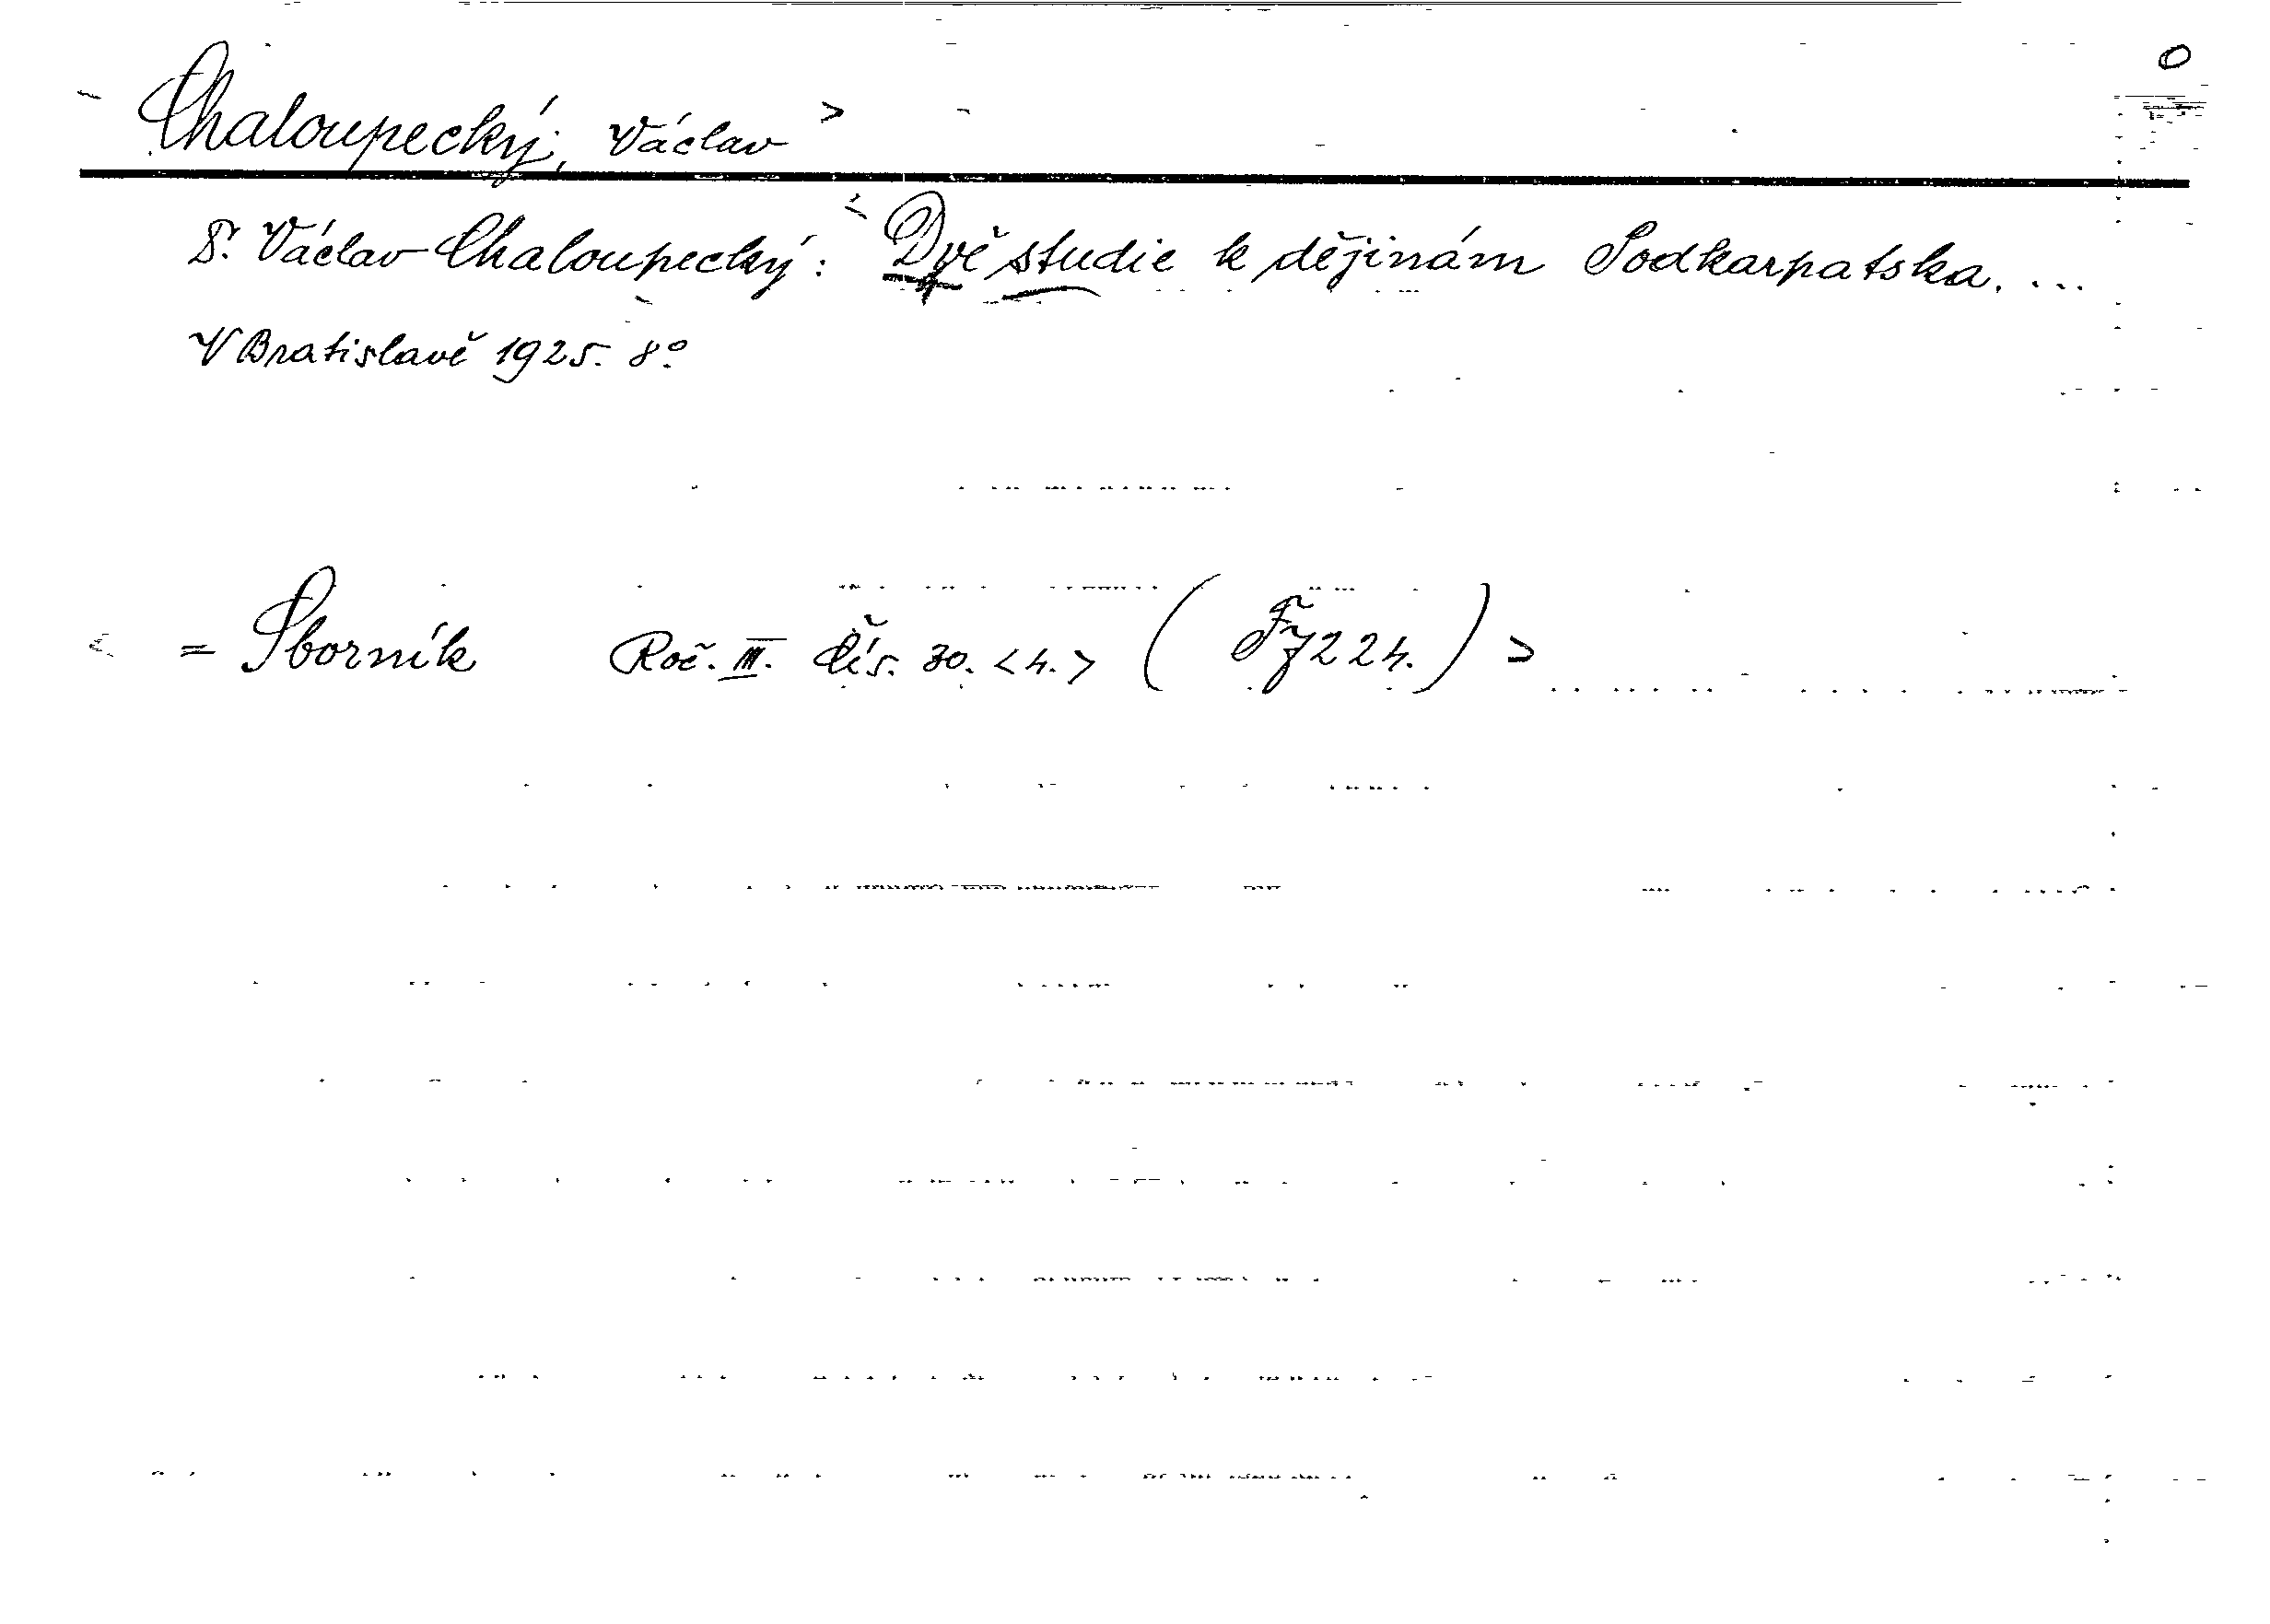 O
Chaloupecký, Václav >
Dr. Václav Chaloupecký: Dvě studie k dějinám Podkarpatska. ...
V Bratislavě 1925. 8°.
= Sborník Roč. III. čís. 30. <4.> ( ) >